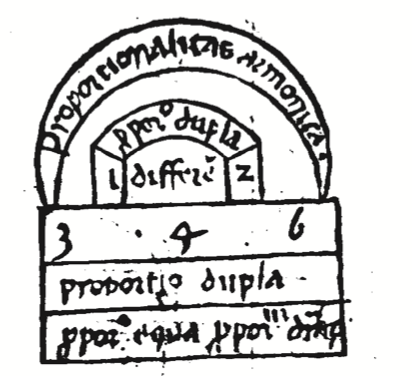 proporcionalitas armonica.
ꝓporᵒ dupla
1 differē 2
3 · 4 . 6
proportio dupla
ꝓporᵒ equa ꝓporᵒ